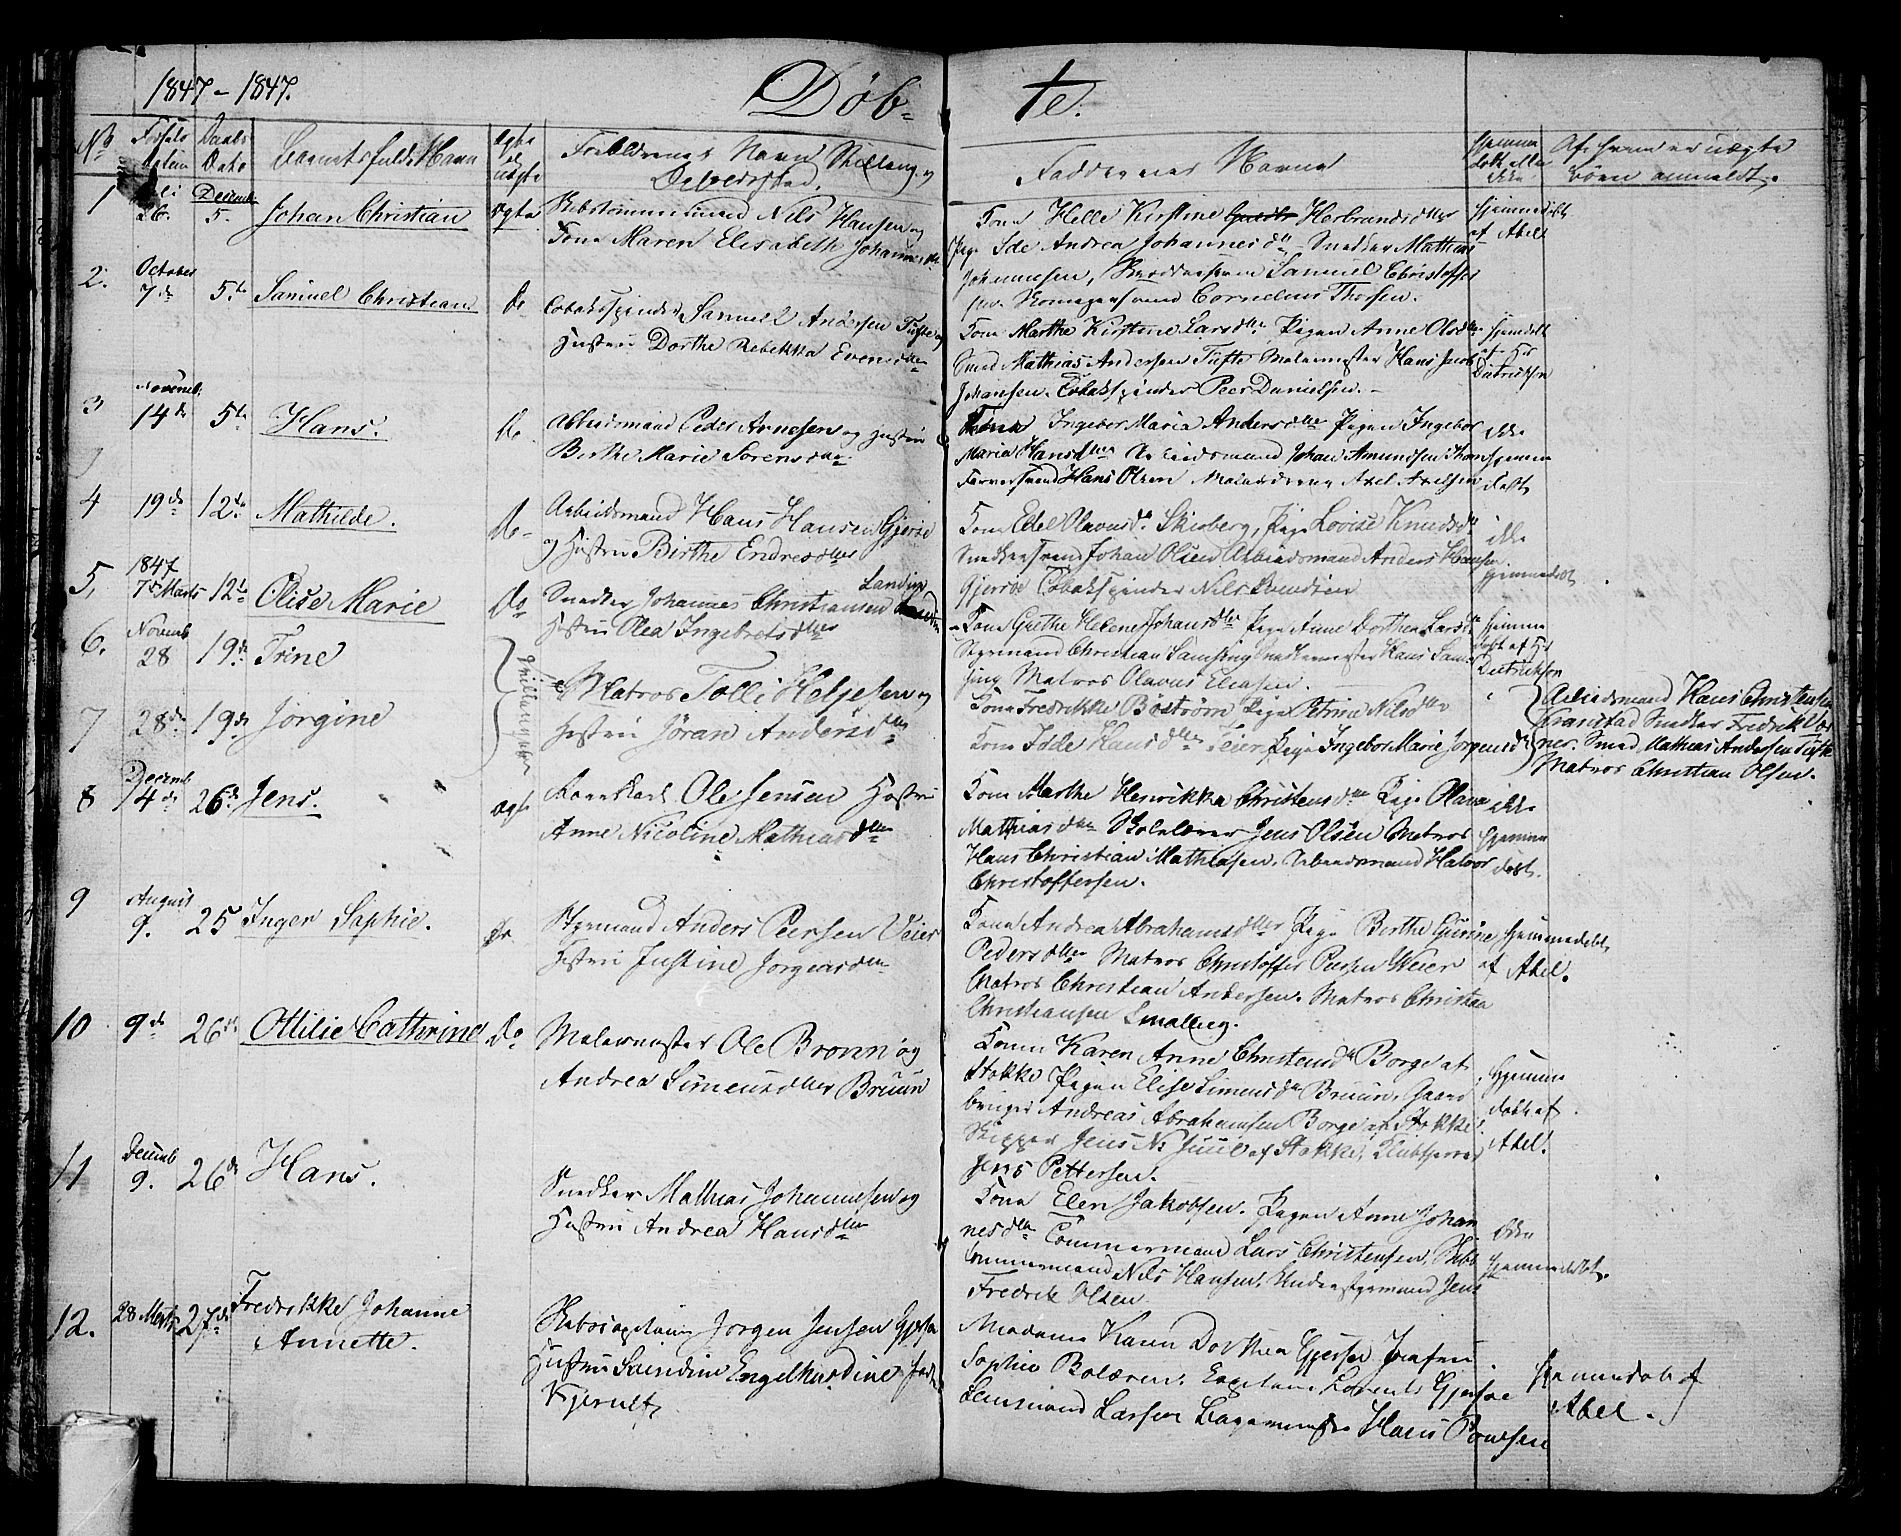 1847 – 1847.
Døb-
te.
No
Fødsels Datum
Daabs Dato
Barnets fulde Navn
Ægte el uægte
Forældrenes Navn Stilling og
Opholdsstad.
Faddernes Navne
Hjemme døbt eller ikke
Af hvem er uægte
Børn anmeldt.
1
Juli 26.
Decemb 5.
Johan Christian
Ægte
Skibstømmermand Nils Hansen og
Kone Maren Elisabeth Johannesdtr
Kone Helle Kirstine Herbrandsdtr
Pige Ide Andrea Johannesdtr Snedker Mathias
Johannesen, Samuel Christoffer
sen. Skomagersvend Cornelius Thorsen.
Hjemmedøbt
af Abel
2.
October 7de
5te
Samuel Christian
do
Tobakspinder Samuel Andersen Tufte og
Hustru Dorthe Rebekka Evensdtr
Kone Marthe Kirstine Larsdtr, Pigen Anne Olsdtr
Smed Mathias Andersen Tufte Malermester Hans Jacob
Johansen. Tobakspinder Peer Danielsen. –
Hjemdøbt
af Hr
Dietrikson
3
Novemb. 14de
5te
Hans.
do
Arbeidsmand Peder Arnesen og Hustru
Birthe Marie Sørensdtr
Kone Ingebor Maria Andersdtr Pigen Ingebor
Maria Hansdtr Arbeidsmand Johan Amundsen
Farversvend Hans Olsen Axel Axelsen
ikke
hjemme
døbt
4
19de
12te
Mathilde.
do
Arbeidsmand Hans Hansen Gjersøe
og Hustru Birthe Endresdtr
Kone Edel Olavusdr Skieberg, Pige Lovise Knudsdtr
Snedkersvend Johan Olsen Arbeidsmand Anders Hansen
Gjersøe Tobakspinder Nils Svendsen
ikke
hjemmedøbt
5,
1847
7de Marts
12te
Olise Marie
do
Snedker Johannes Christiansen
Hustru Olea Ingebretsdtr
Kone Grethe Helene Johansdtr Pige Anne Dorthea Larsdtr
Styrmand Christian Samsing Snedkermester Hans Sam
sing Matros Olavus Eliasen.
Hjemme
døbt af Hr
Dietrikson
6.
Novemb 28
19de
Trine
Tvillingebørn
Matros Tolli Helgesen og
Hustru Jøran Andersdtr
Kone Fredrikke Bostrøm Pige Petrine Nilsdtr
Arbeidsmand Hans Christensen
Snedker Fredrik
Smed Mathias Andersen Tufte
Matros Christian Olsen.
7
28de
19de
Jørgine
Kone Ide Hansdtr Veier, Pige Ingebor Marie Jørgensdtr
8
Decemb 14de
26de
Jens.
ægt
Ole Jensen Hustru
Anne Nicoline Mathiasdtr
Kone Marthe Henrikka Christensdtr Pige Olava
Mathiasdtr Skolelærer Jens Olsen Matros
Hans Christian Mathiasen, Arbeidsmand Halvor
Christoffersen.
ikke
hjemme
døbt.
9
August 9.
25
Inger Sophie.
do
Styrmand Anders Peersen Veier
Hustru Justine Jørgensdtr
Kone Andrea Abrahamsdtr Pige Birthe Gurine
Pedersdtr Matros Christoffer Peersen Weier
Matros Christian Andersen. Matros Christian
Christiansen Smalberg.
Hjemmedøbt
af Abel.
10
9de
26de
Ottilie Cathrine
do
Malermester Ole Brønn og
Andrea Simensdtr Bruun
Kone Karen Anne Christensdtr Borge af
Stokke Pigen Elise Simensdtr Bruun, Gaard
bruger Andreas Abrahamsen Borge af Stokke
Skipper Jens N. Juul af Stokke,
Jens Pettersen.
Hjemme
døbt af
Abel.
11
Decemb 9.
26de
Hans.
Snedker Mathias Johannesen og
Hustru Andrea Hansdtr
Kone Elen Jakobsen. Pigen Anne Johan
nesdtr Tømmermand Lars Christensen, Skibs
tømmermand Nils Hansen, Understyrmand Jens
Fredrik Olsen.
Ikke
hjemmedøbt.
12.
28 Marts
27de
Fredrikke Johanne
Annette.
Skibscapitain Jørgen Jensen Gjersøe
Hustru Engelhardine
Kjerulf,
Madame Karen Dorthea Gjersøe Jomfru
Sophie Bolæren. Capitain Lorents Gjersøe
Lensmand Larsen Bagermester Hans Poulsen
Hjemmedøbt af
Abel.